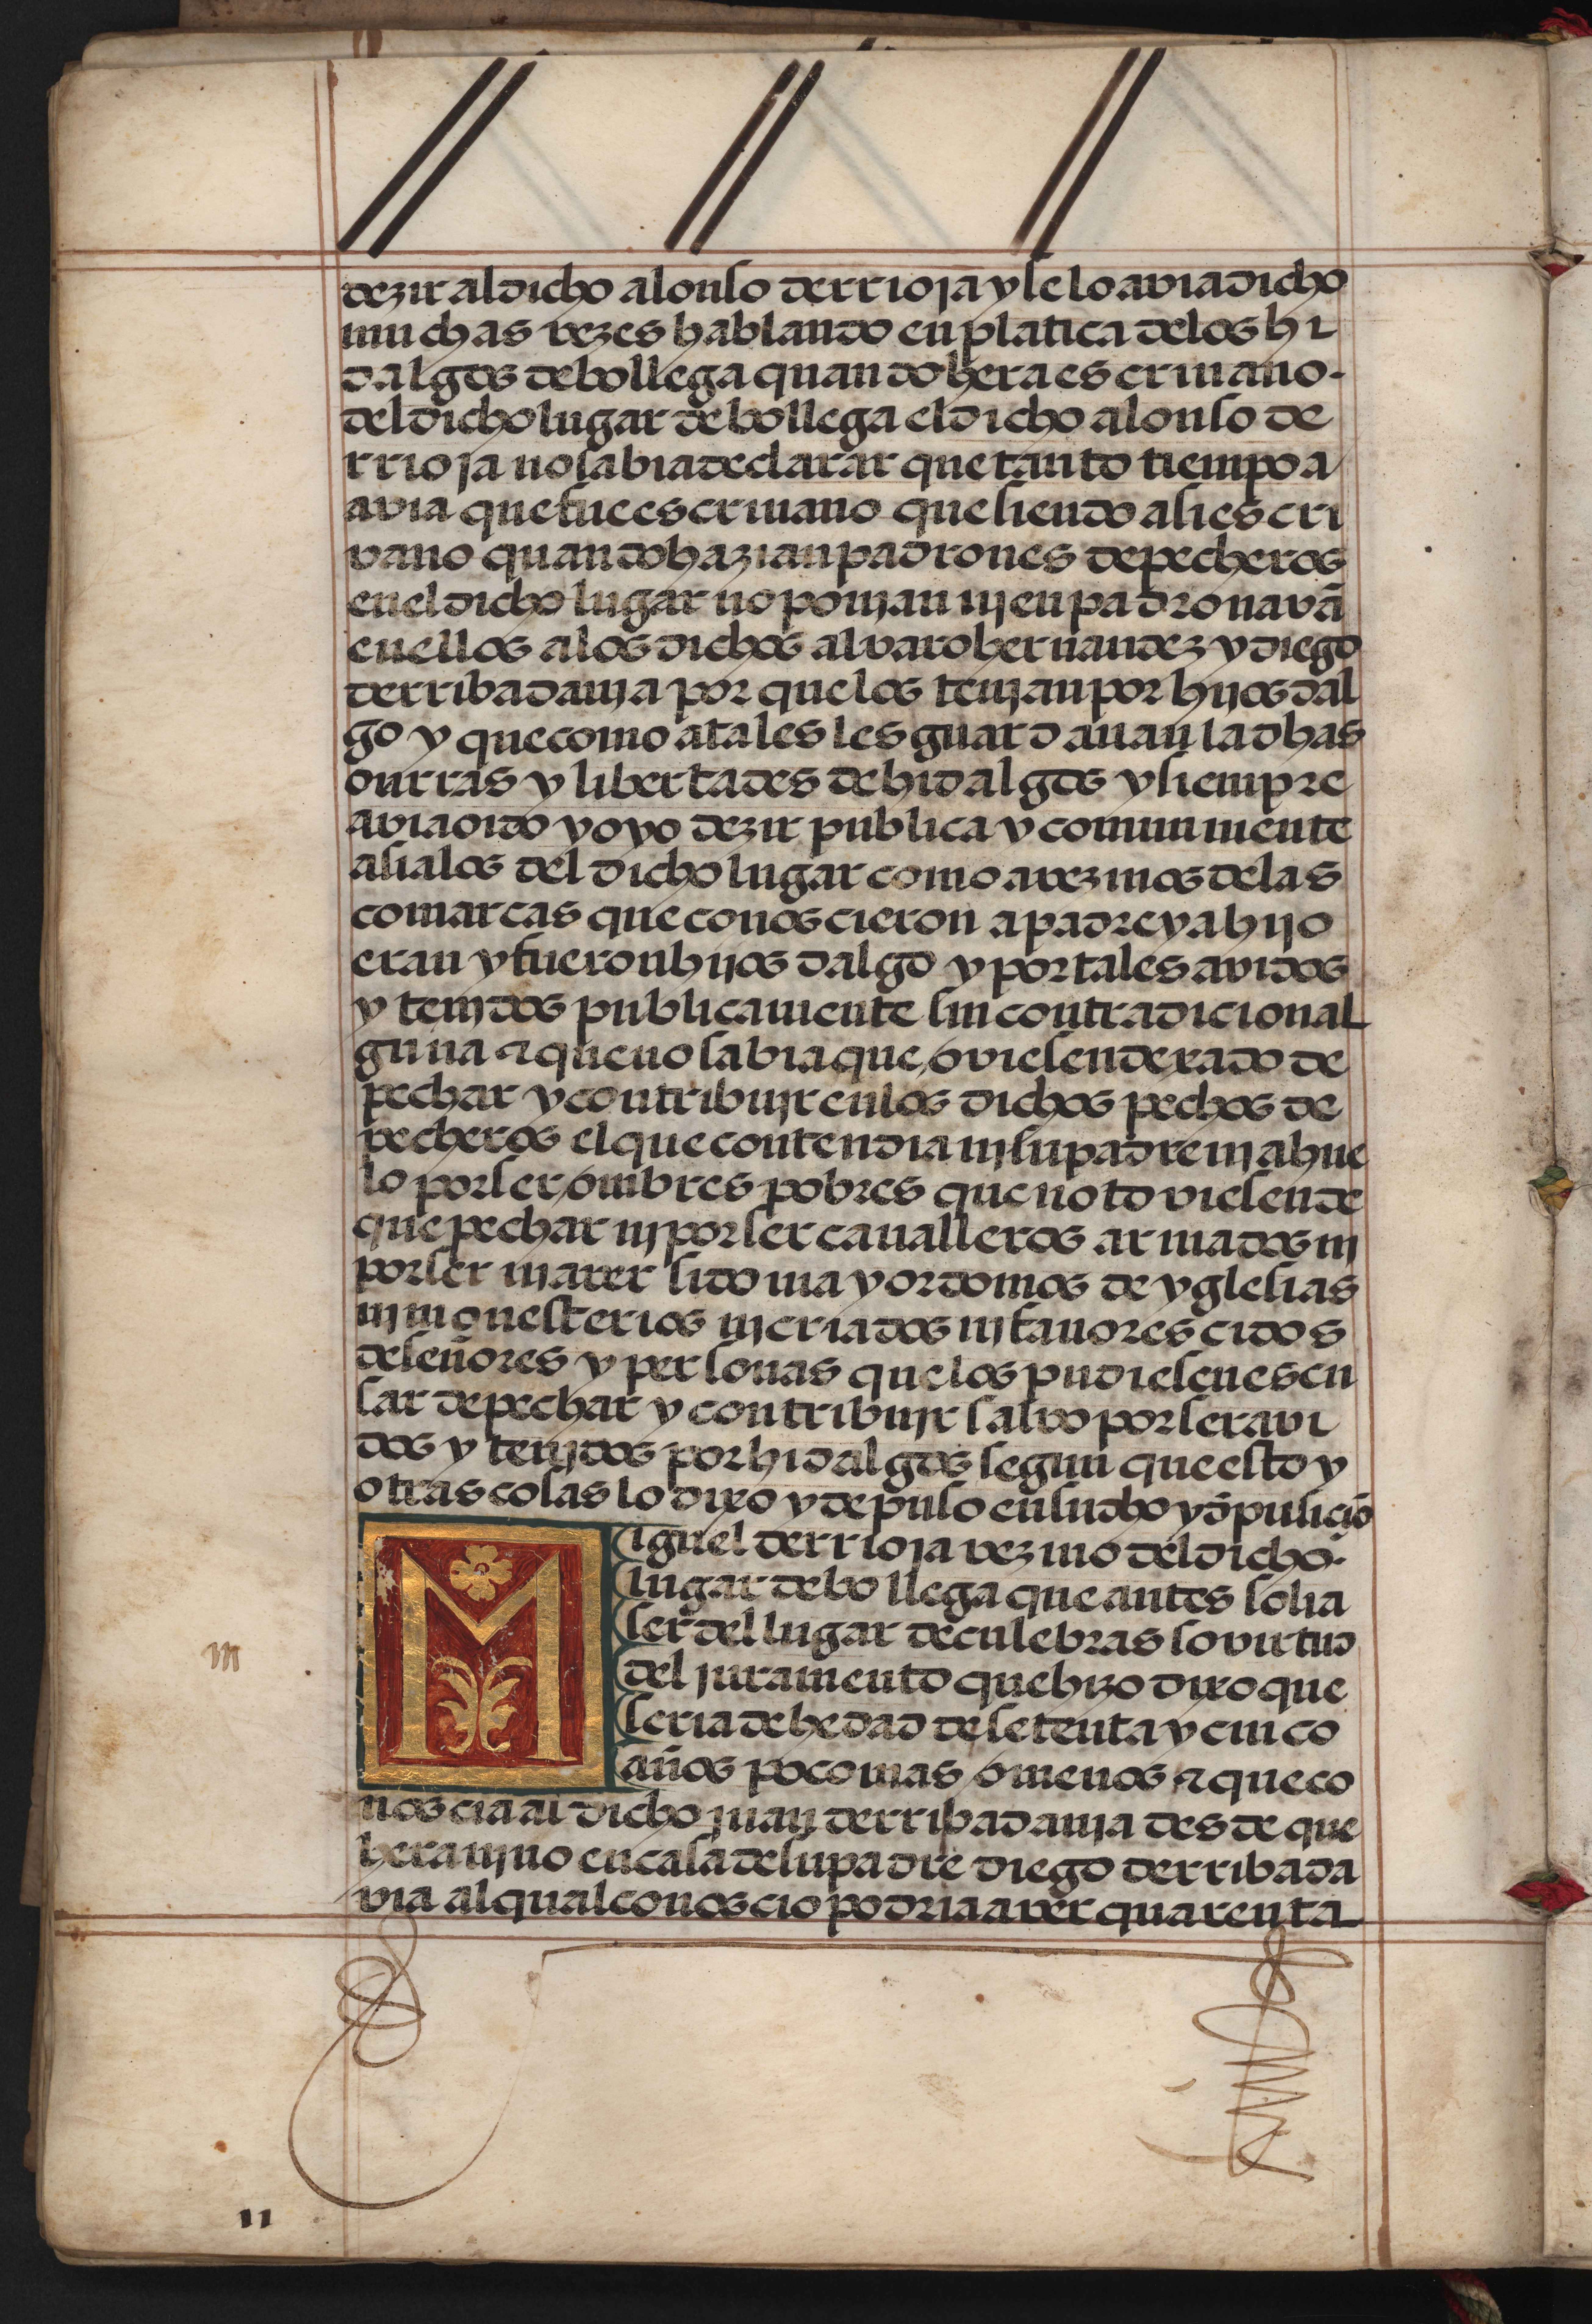 dezir al dicho alonso de rrioja y se lo avia dicho
muchas vezes hablando en platica de los hi
dalgos de bollega quando hera escriuano.
del dicho lugar de bollega el dicho alonso de
rrioja no sabia declarar que tanto tiempo a
avia que fue escriuano que siendo asi escri
vano quando hazian padrones de pecheros
en el dicho lugar no ponjan nj enpadronavā
en ellos a los dichos alvaro hernandez y diego
de rribadavja por que los tenjan por hijos dal
go y que como a tales les guardauan la dhas
onrras y libertades de hidalgos y siempre
avia oido y oyo dezir publica y comunmente
asi a los del dicho lugar como a vezinos de las
comarcas que conoscieron a padre y a hijo
eran y fueron hijos dalgo y por tales avidos
y tenjdos publicamente sin contradicion al
guna e que no sabia que oviesen dexado de
pechar y contribujr en los dichos pechos de
pecheros el que contendia nj su padre nj ahue
lo por ser ombres pobres que no toviesen de
que pechar nj por ser caualleros armados nj
por ser nj aver sido mayordomos de yglesias
nj monesterios nj criados nj fauorescidos
de señores y personas que los pudiesen escu
sar de pechar y contribujr salvo por ser avi
dos y tenjdos por hidalgos segun que esto y
otras cosas lo dixo y depuso en su dho y dpusiciō
Miguel de rrioja vezino del dicho.
lugar de bollega que antes solia
ser del lugar de culebras so virtud
del juramento que hizo dixo que
seria de hedad de setenta y cinco
años poco mas o menos e que co
noscia al dicho juan de rribadavja desde que
hera njno en casa de su padre diego de rribada
via al qual conoscio podria aver quarenta
m
11